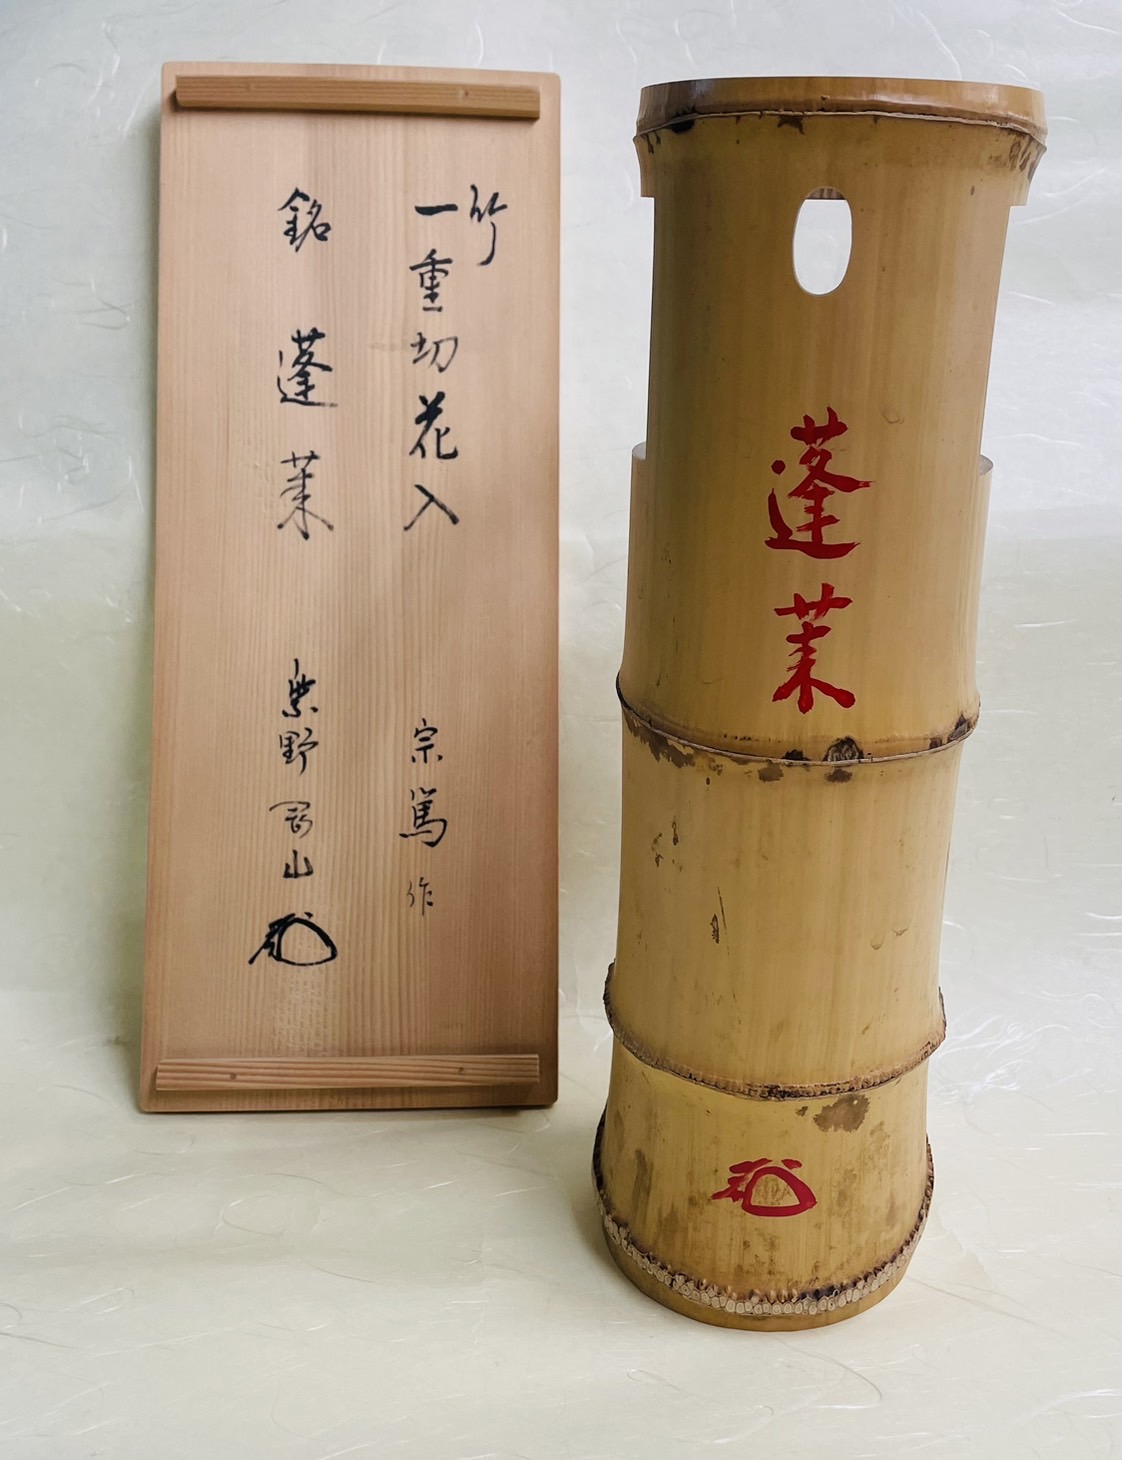 竹
一重切花入 宗篤作
銘 蓬莱 紫野
山
蓬莱